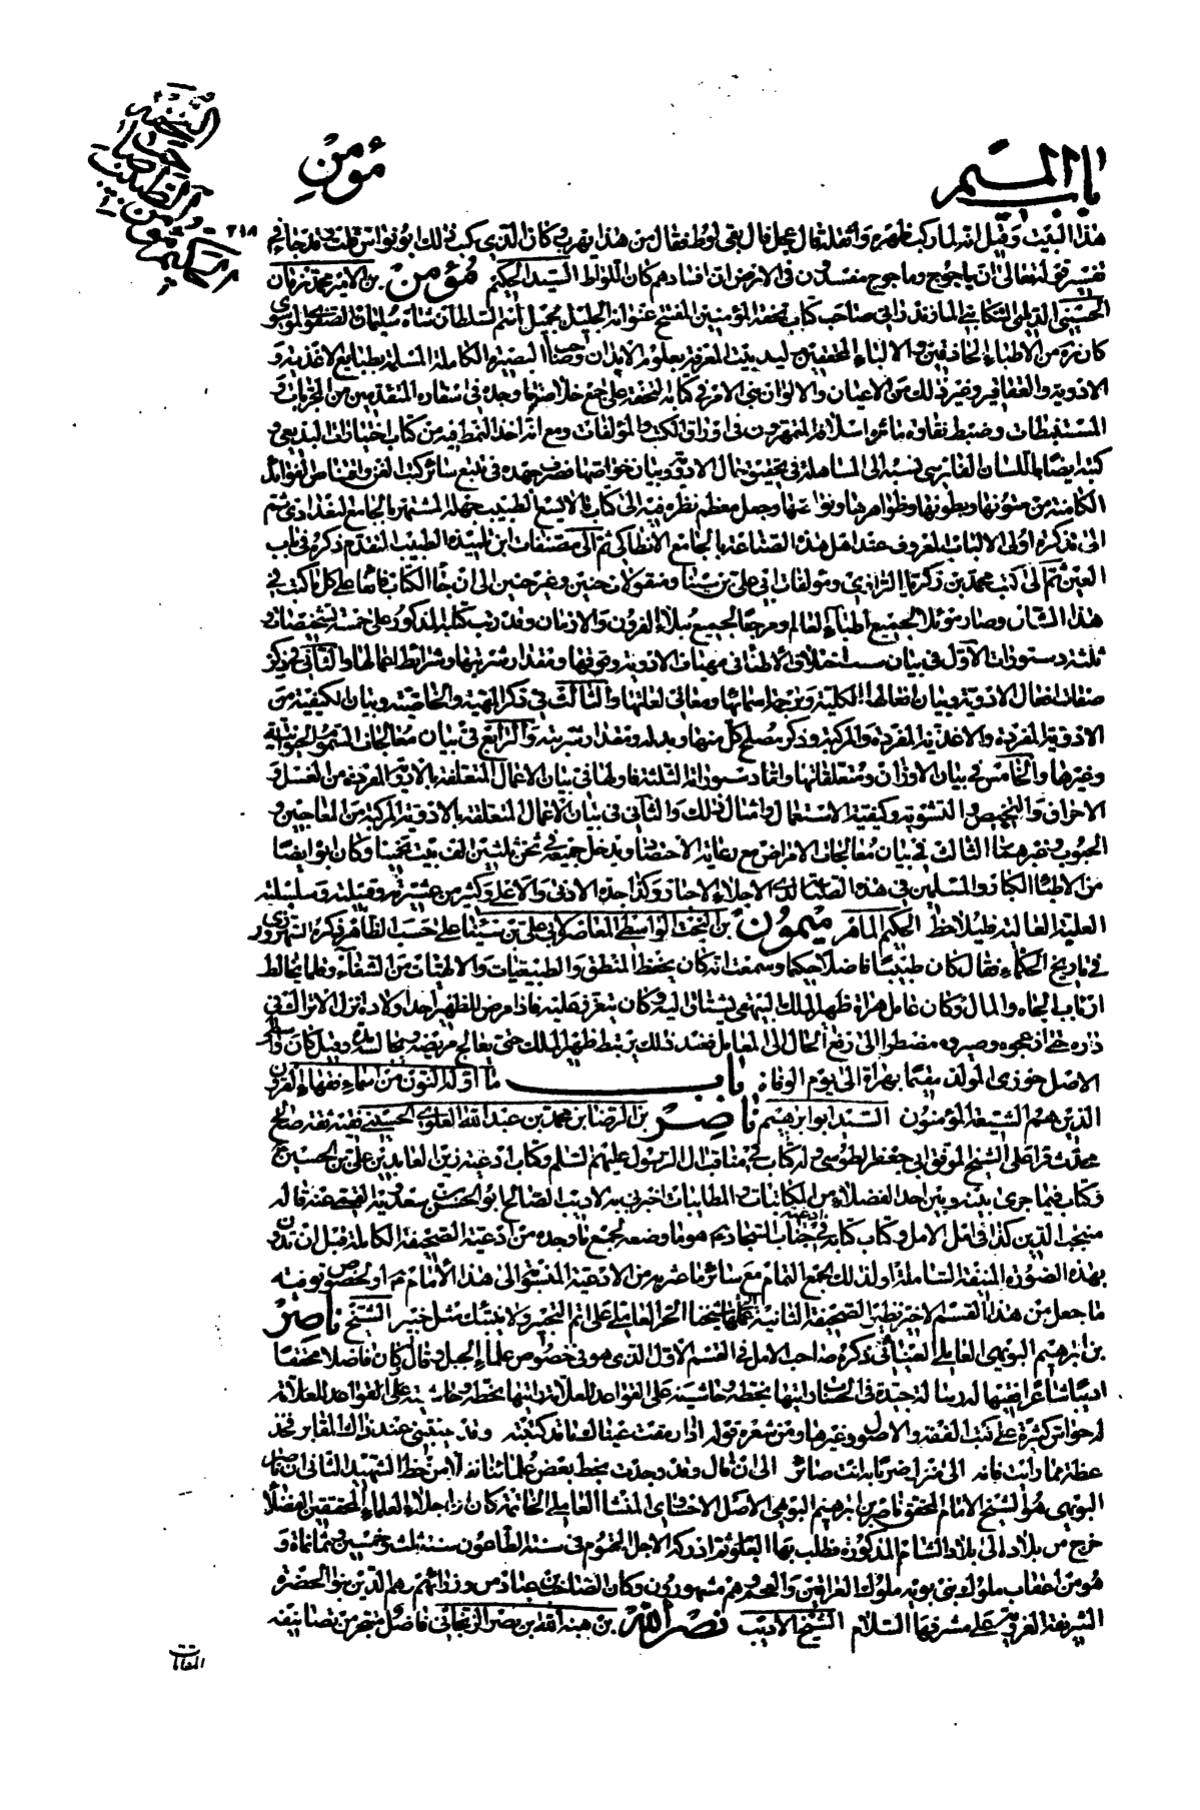 باب الميم
مؤمن
السيد الحكيم مؤمن
الطب صاحب التحفة
٢١٨
هذا البيت وقيل انه لما ركب ظهره واثقله قال عجل قال بقى لوط فقال من هذا يهرب وكان الذي كتب ذلك ابو نواس قلت وقد جاء في
تفسير قوله تعالى ان ياجوج وماجوج مفسدون في الارض ان افسادهم كان اللواط السيد الحكيم مؤمن بن الامير محمد زمان
الحسيني الديلمي التنكابني المازندراني صاحب كتاب تحفة المؤمنين المفتتح عنوانه الجليل بجميل اسم السلطان شاه سليمان الصفوي الموسوي
كان من الاطباء الحاذقين والالباء المحققين له يد بيت المعرفة بعلوم الابدان وصاحب البصيرة الكاملة المسلمة بطبايع الاغذية و
الادوية والعقاقير وغير ذلك من الاعيان والالوان بنى الامر في كتابه التحفة على جمع خلاصة ما وجده في اسفار المتقدمين من المجربات و
المستنبطات وضبط نقاوة ماثر اسلافه المتمهرون في اوراق الكتب والمؤلفات ومع انه اخذ النمط فيه من كتاب اختيارات البديعي و
كتبه ايضا باللسان الفارسي نسبه الى المساهلة في تحقيق حال الادوية وبيان خواصها فصرف جهده في تتبع سائر كتب الفن واقتناص الفوائد
الكامنة من متونها وبطونها وظواهرها وجعل معظم نظره فيه الى كتاب ما لا يسع الطبيب جهله المشتهر بالجامع البغدادي ثم
الى تذكرة اولى الالباب المعروف عند اهل هذه الصناعة بالجامع الانطاكي ثم الى مصنفات ابن تلميذه الطبيب المتقدم ذكره في باب
العين ثم الى كتب محمد بن زكريا الرازي ومؤلفات ابي علي بن سينا ومنقولات حنين وغير حنين الى ان جاء الكتاب فائقا على كل ما كتب في
هذا الشان وصار موئلا لجميع اطباء العالم ومرجعا لجميع نبلاء القرون والازمان وقد رتب كتابه المذكور على خمسة تشخيصات و
ثلثة دستورات الاول في بيان سبب اختلاف الاطباء في مهيات الادوية وقوتها ومقدار شربتها وشرائط اعمالها والثاني في ذكر
صفات افعال الادوية وبيان افعالها الكلية وترجمة اسمائها ومعاني لغاتها والثالث في ذكر المهية والخاصية وبيان الكيفية من
الادوية المفردة والاغذية المفردة والمركبة وذكر مصلح كل منها وبدله ومقدار شربته والرابع في بيان معالجات السموم الحيوانية
وغيرها والخامس في بيان الاوزان ومتعلقاتها واما دستوراته الثلثة فاولها في بيان الاعمال المتعلقة بالادوية المفردة من الغسل و
الاحراق والتحميص والتشوية وكيفية الاستعمال وامثال ذلك والثاني في بيان الاعمال المتعلقة بالادوية المركبة من المعاجين و
الحبوب وغيرهما الثالث في بيان معالجات الامراض مع رعاية الاختصار ويدخل جميعه في نحو ثلثين الف بيت تخمينا وكان ابوه ايضا
من الاطباء الكبار والمسلمين في هذه الصناعة لدى الاجلاء الاحبار وكذا جده الادنى والاعلى وكثير من عشيرته وقبيلته وسلسلته
العلية العالية فليلاحظ الحكيم الماهر ميمون بن النجيب الواسطي المعاصر لابي علي بن سينا على حسب الظاهر ذكره الشهرزوري
في تاريخ الحكماء فقال كان طبيبا فاضلا حكيما وسمعت انه كان يحفظ المنطق والطبيعيات والالهيات من الشفاء وقلما يخالط
ارباب الجاه والمال وكان عامل هراة ظهير الملك البيهقي يشتاق اليه وكان يتعرف عليه فاذا مرض للظهير احد اولاده نزل الاتراك في
داره حتى ازعجوه وصيروه مضطرا الى رفع الحال الى العامل فعند ذلك يرتبط ظهير الملك حتى يعالج مريضه وقيل كان واسطي
الاصل خوزي المولد مقيما بهراة الى يوم الوفاة باب ما اوله النون من اسماء فقهاء الفرق
الذين هم الشيعة المؤمنون السيد ابو ابرهيم ناصر بن الرضا بن محمد بن عبد الله العلوي الحسيني فقيه ثقة صالح
محدث قرا على الشيخ الموفق ابي جعفر الطوسي وله كتاب في مناقب ال الرسول عليهم السلم وكتاب ادعية زين العابدين علي بن الحسين ع
وكتاب فيما جرى بينه وبين احد الفضلاء من المكاتبات والمطايبات اخبرني به الاديب الصالح ابو الحسن بن سعدويه القمي عنه قاله
منتجب الدين كذا في امل الامل وكتاب كتابه في ادعية جناب السجاد ع هو ما وضعه لجمع ما وجده من ادعية الصحيفة الكاملة قبل ان تدون
بهذه الصورة المنيفة الشاملة او لذلك بجمع التمام مع سائر ما عثر به من الادعية المنسوبة الى هذا الامام ع او لخصوص توفية
ما جعل من هذا القسم الاخير نظير الصحيفة الثانية التي عملها شيخنا الحر العاملي على اتم التحبير ولا ينبئك مثل خبير الشيخ ناصر
بن ابرهيم البويهي العاملي العيناثي ذكره صاحب الامل في القسم الاول الذي هو في خصوص علماء الجبل وقال كان فاضلا محققا
اديبا شاعرا فقيها له رسالة جيدة في الحساب رايتها بخطه وحاشيته على القواعد للعلامة رايتها بخطه وحاشيته على القواعد للعلامة
له حواش كثيرة على كتب الفقه والاصول وغيرها ومن شعره قوله اذا رمقت عيناك ما قد كتبته وقد غيبتني عند ذاك المقابر فخذ
عظة مما رايت فانه الى منزل صرنا به انت صائر الى ان قال وقد وجدت بخط بعض علمائنا نقلا من خط الشهيد الثاني ان ناصر
البويهي هو الشيخ الامام المحقق ناصر بن ابرهيم البويهي الاصل الاحسائي المنشا العاملي الخاتمة كان من اجلاء العلماء المحققين الفضلاء
خرج من بلاده الى بلاد الشام المذكورة فطلب بها العلوم ثم ادركه الاجل المحتوم في سنة الطاعون سنة ثلث وخمسين وثمانمائة و
هو من اعقاب ملوك بني بويه ملوك العراقين والعجم وهم مشهورون وكان الصاحب بن عباد من وزرائهم وهم الذين بنوا الحضرة
الشريفة الغروية على مشرفها السلام الشيخ الاديب نصر الله بن هبة الله بن نصر الزنجاني فاضل متبحر من تصانيفه
المقامات